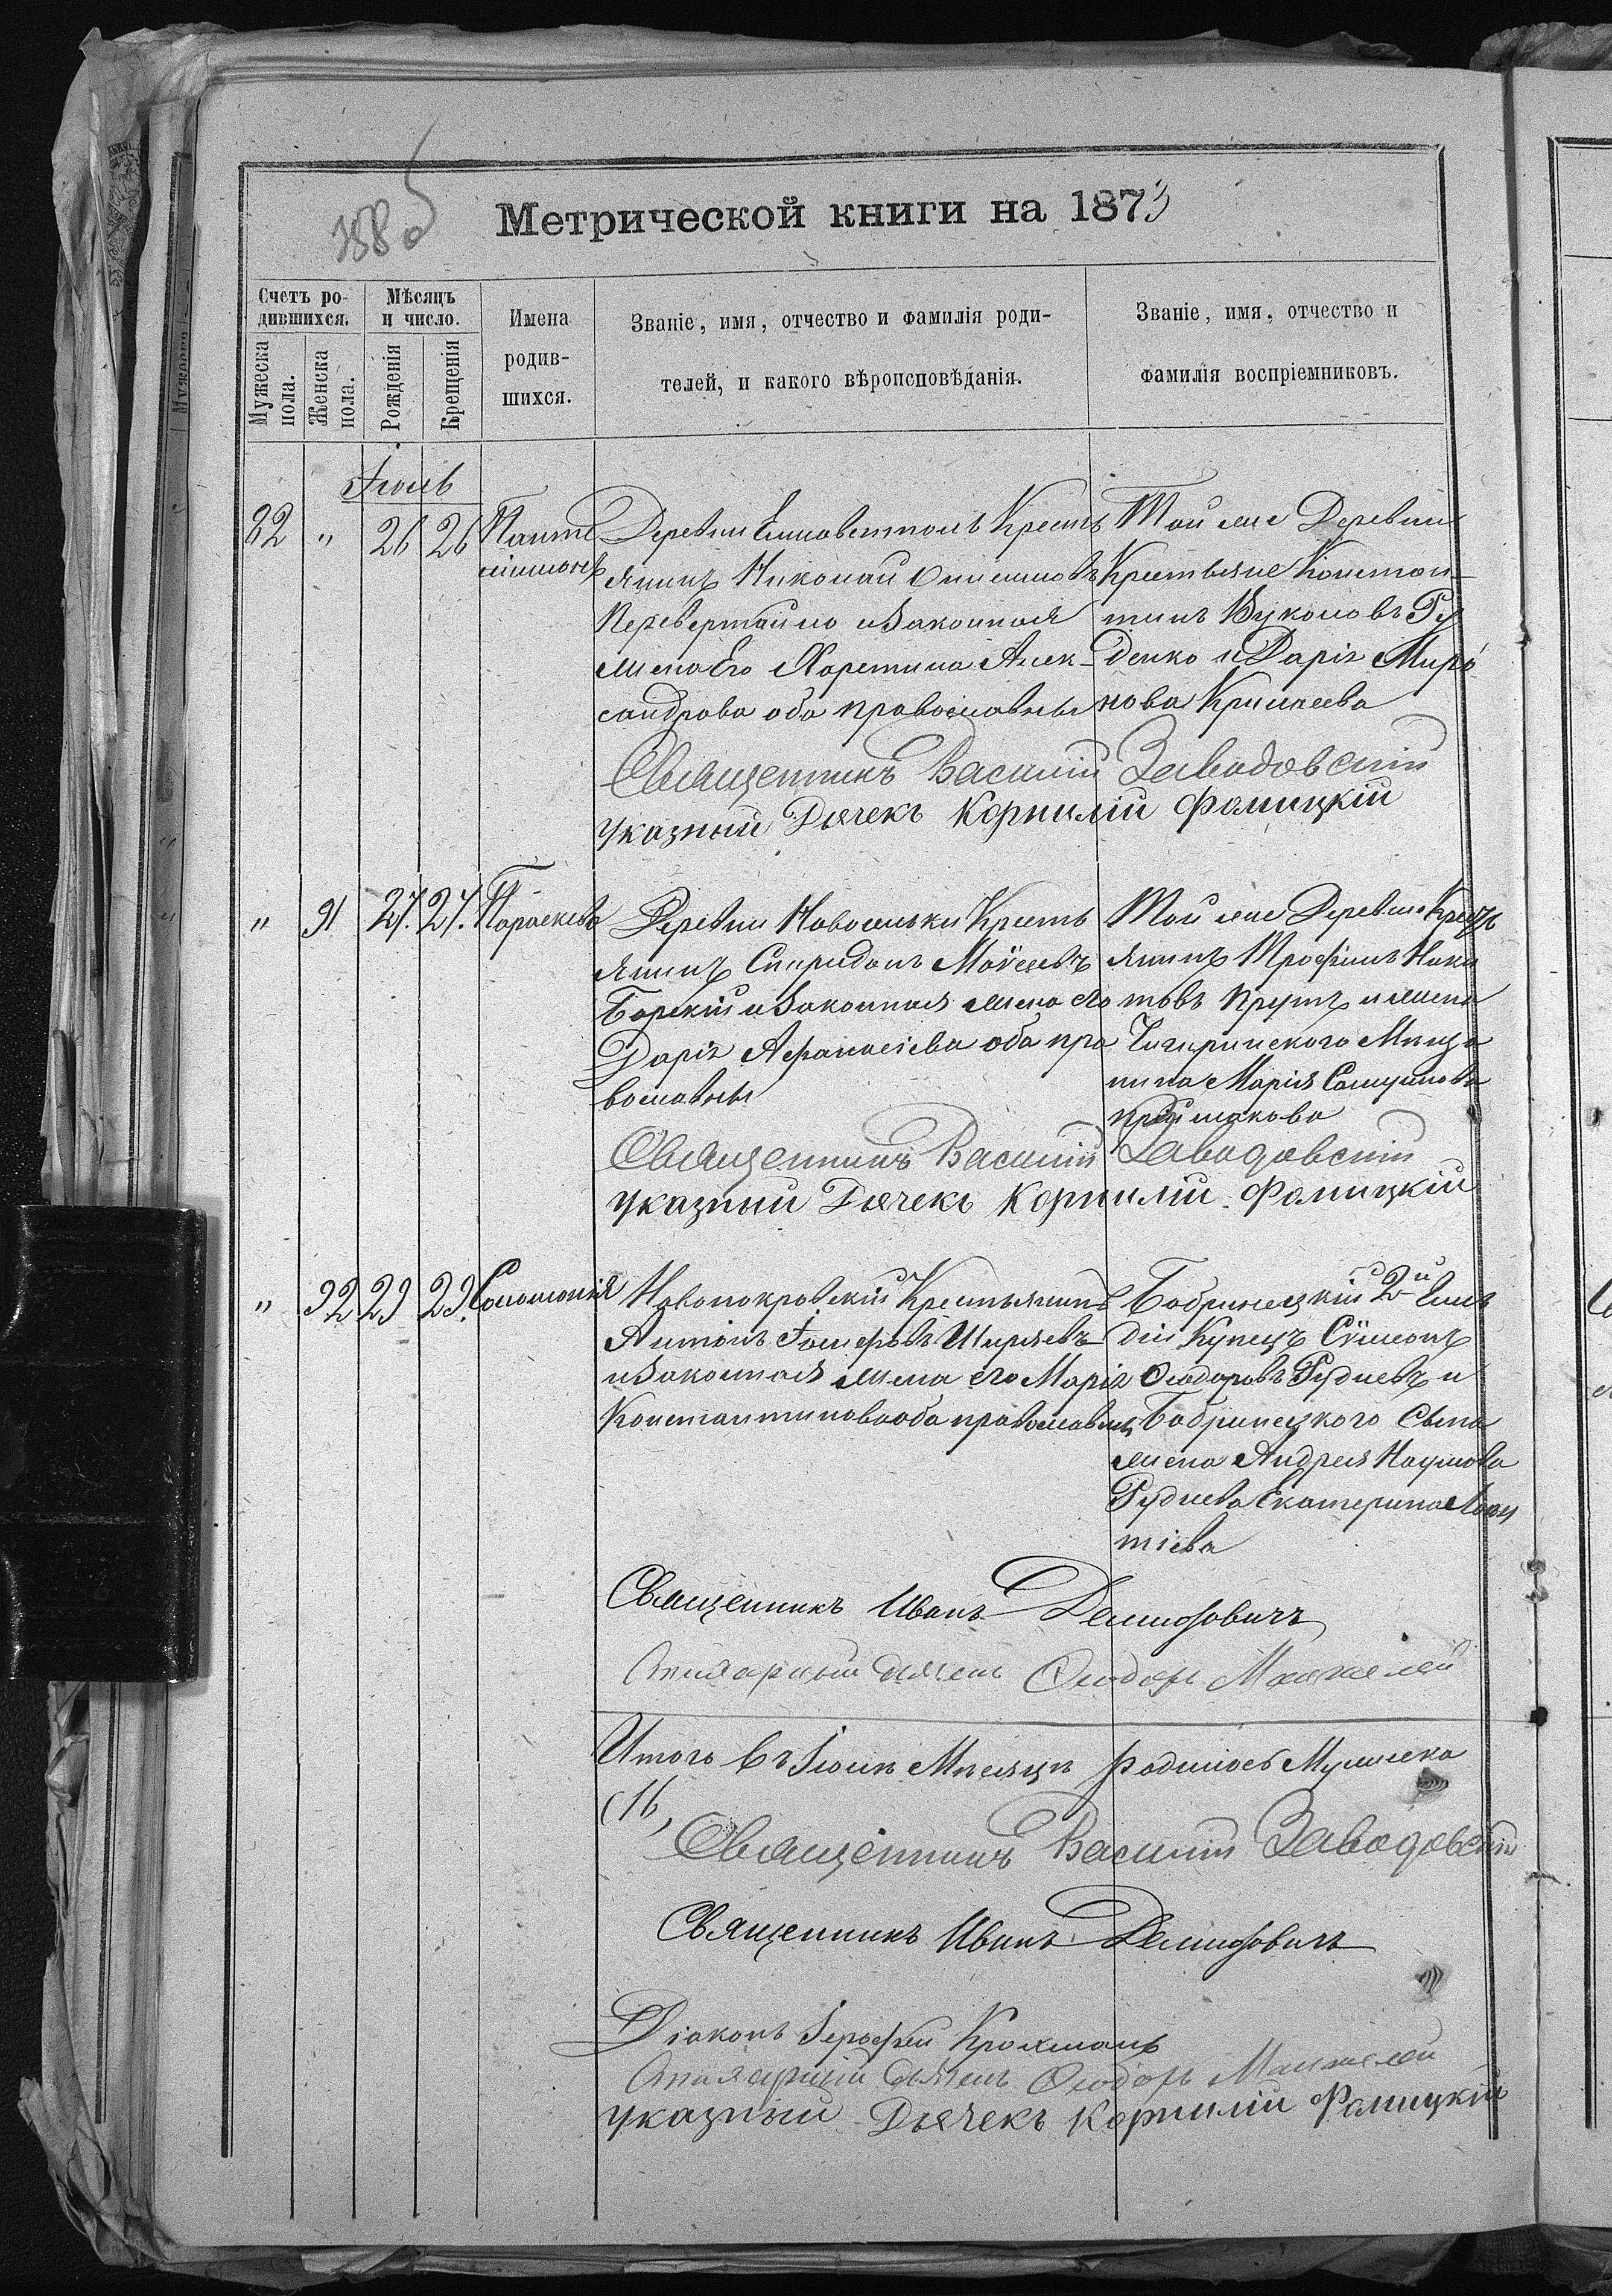 Метрической книги на 1873
Счетъ ро-
дившихся.
Мужеска
пола.
Женска
пола.
Мѣсяцъ
и число.
Рожденія
Крещенія
Имена
родив-
шихся.
Званіе, имя, отчество и фамилія роди-
телей, и какого вѣроисповѣданія.
Званіе, имя, отчество и
фамилія воспріемниковъ.
Іюль
82 " 26 26 Панте
лиимонъ
Деревни Крестъ
янинъ Николай Онисимовъ
Перевертайло и Законная
жена Его Харетина Алек-
сандрова оба православны
Той же Деревни
Крестьяне Констан-
тинъ Вуколовъ Ру
денко и Дарія Миро
нова
Священникъ Василій Заводовскій
Указный Дячекъ Корнилій Фомицкій
" 91 27. 27. Параскева
Деревни Новоселки Кресть
янинъ Спиридонъ Моѵсеевъ
Борскій и Законная жена его
Дарія Афанасіева оба пра
вославны
Той же Деревни Кресть
янинъ Трофимъ Ники
товъ Прутъ и жена
Чигиринского Мѣща
нина Марія Самуилова
Священникъ Василій Заводовскій
Указный Дячекъ Корнилій Фомицкій
" 92 29 29. Соломонія
Новопокровскій Крестьянинъ
Антонъ Іосифовъ Ширяевъ
и Законная жена его Марія
Константинова оба православны
Бобринецкій 2й Гиль
діи Купецъ Сѵмеонъ
Ѳеодоровъ Рудневъ и
Бобринецкого Сына
жена Андрея Наумова
Руднева Екатерина Леон
тіева
Священникъ Иванъ Демидовичъ
Ѳеодоръ
Итого въ Іюлѣ Мѣсяцѣ родилось Мужеска
16
Священникъ Василій Заводовскій
Священникъ Иванъ Демидовичъ
Діаконъ Іерофей
Ѳеодоръ
Указный Дячекъ Корнилій Фомицкій